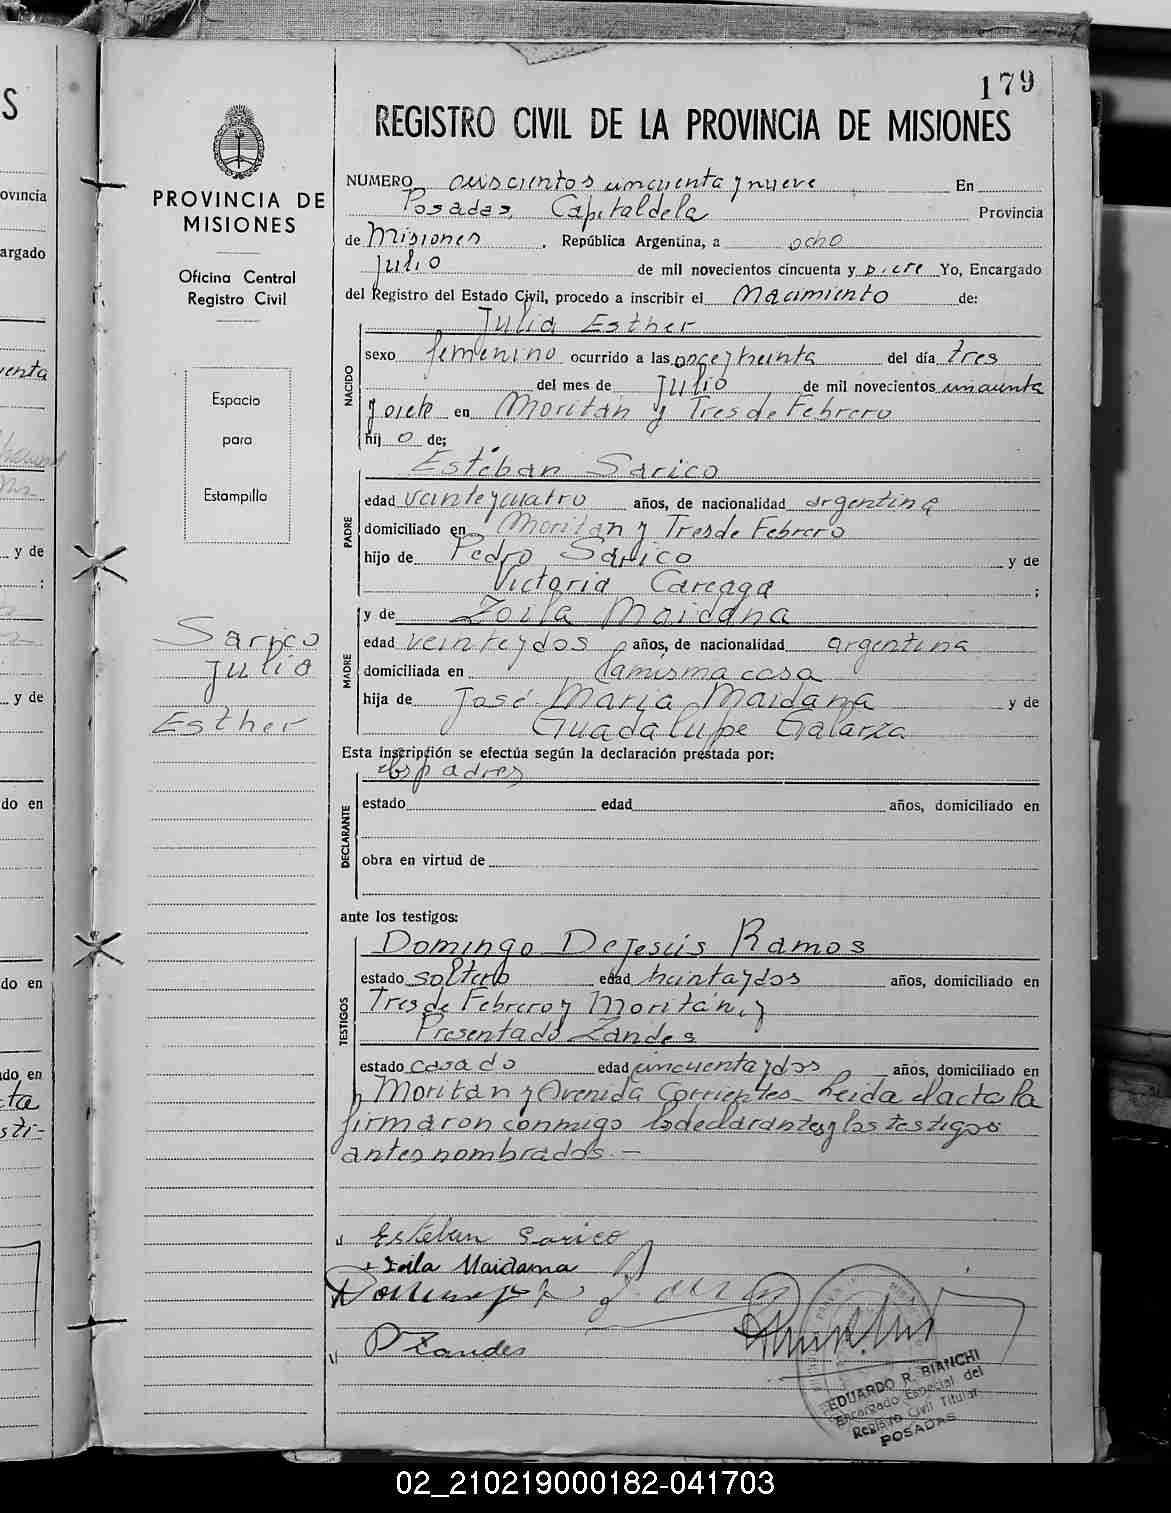 179
REGISTRO CIVIL DE LA PROVINCIA DE MISIONES
PROVINCIA DE
MISIONES
Oficina Central
Registro Civil
Espacio
para
Estampilla
Sarico
Julia
Esther
NUMERO seiscientos cincuenta y nueve En
Posadas, Capital de la Provincia
de Misiones, República Argentina, a ocho
Julio de mil novecientos cincuenta y siete Yo, Encargado
del Registro del Estado Civil, procedo a inscribir el Nacimiento de:
Julia Esther
NACIDO
sexo femenino ocurrido a las once y treinta del día tres
del mes de Julio de mil novecientos cincuenta
y siete en Moritán y Tres de Febrero
hij o de;
Estéban Sarico
PADRE
edad veinte y cuatro años, de nacionalidad argentina
domiciliado en Moritán y Tres de Febrero
hijo de Pedro Sarico y de
Victoria Careaga ;
y de Zoila Maidana
MADRE
edad veinte y dos años, de nacionalidad argentina
domiciliada en la misma casa
hija de José María Maidana y de
Guadalupe Galarza
Esta inscripción se efectúa según la declaración prestada por:
los padres
DECLARANTE
estado edad años, domiciliado en
obra en virtud de
ante los testigos:
TESTIGOS
Domingo De Jesús Ramos
estado soltero edad treinta y dos años, domiciliado en
Tres de Febrero y Moritán, y
Presentado Zandes
estado casado edad cincuenta y dos años, domiciliado en
Moritán y Avenida Corrientes - Leida el acta la
firmaron conmigo los declarantes y los testigos
antes nombrados. -
Esteban Sarico
Zoila Maidana
P Zandes
EDUARDO R. BIANCHI
Encargado Especial del
Registro Civil Titular
POSADAS
S
ovincia
argado
y de
;
y de
do en
do en
do en
02_210219000182-041703